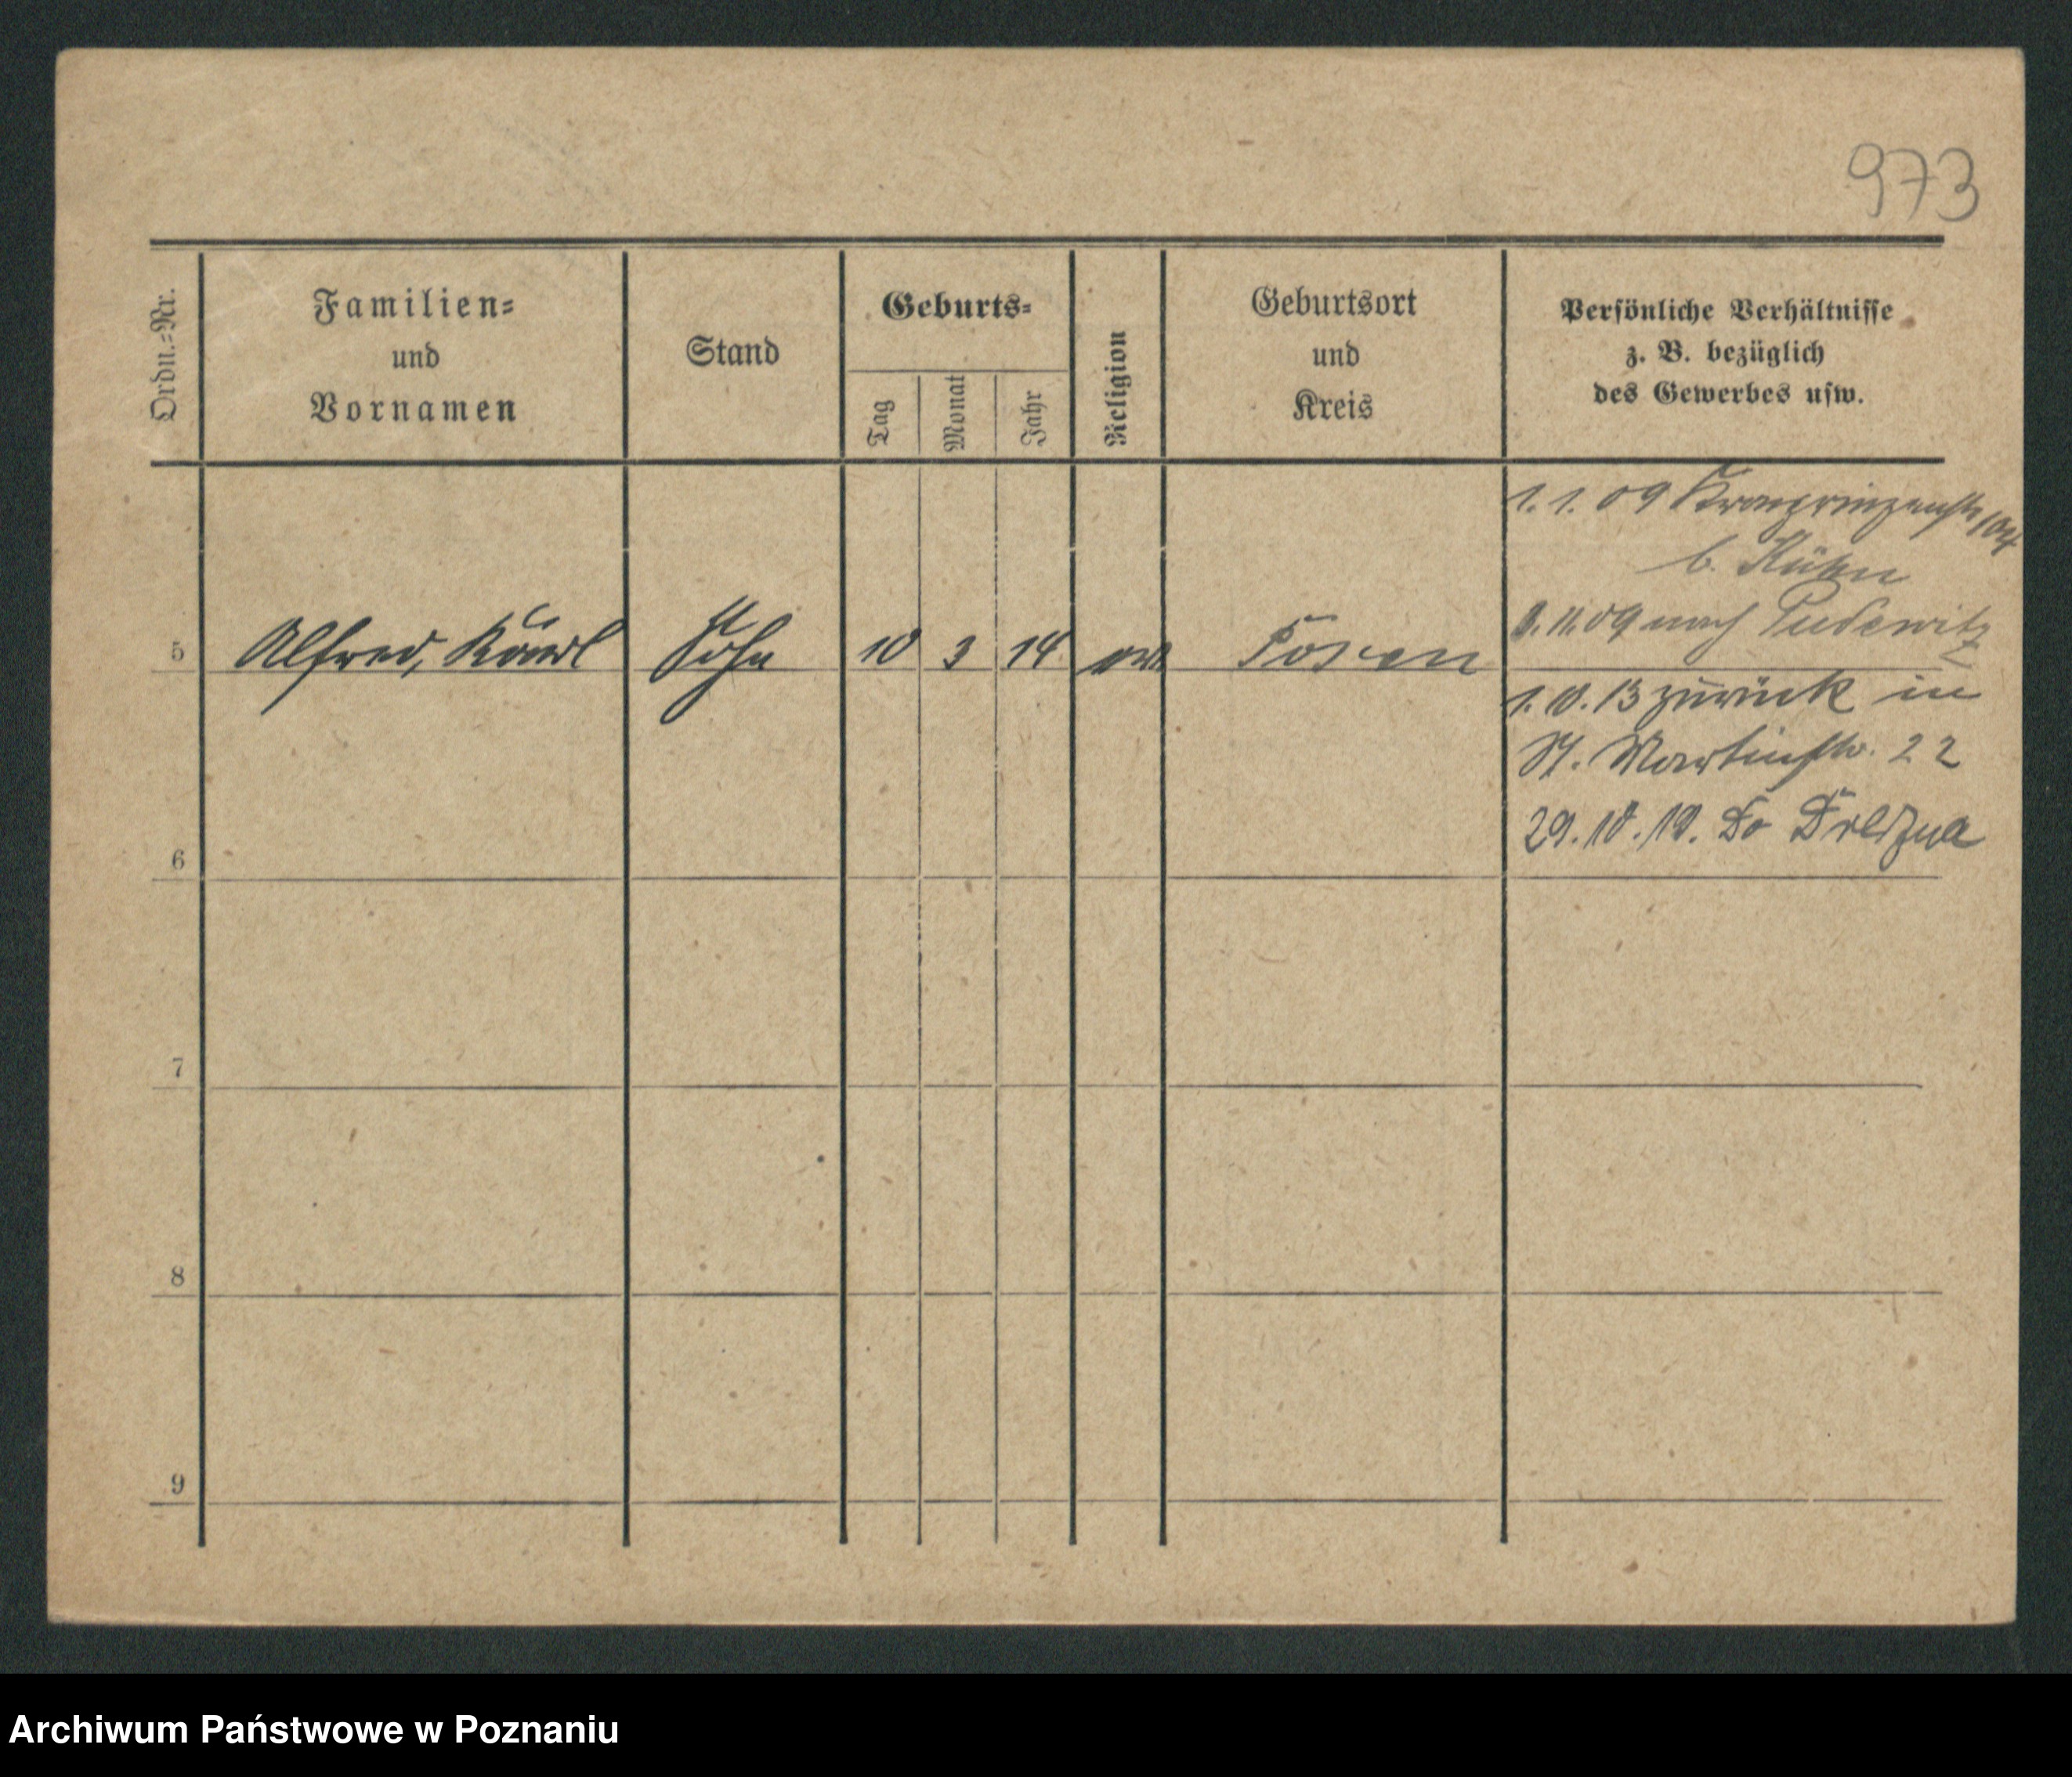 973
Ordn.-Nr.
Familien-
und
Vornamen
Stand
Geburts-
Tag
Monat
Jahr
Religion
Geburtsort
und
Kreis
Persönliche Verhältnisse
z. B. bezüglich
des Gewerbes usw.
1. 1. 09 Kronprinzenstr 104
b. Kühn
nach Pudewitz
5 Alfred, Karl Sohn 10 3 14 Posen
1. 10. 13 zurück in
St. Martinstr. 22
29. 10. 19. Do
6
7
8
9
Archiwum Państwowe w Poznaniu